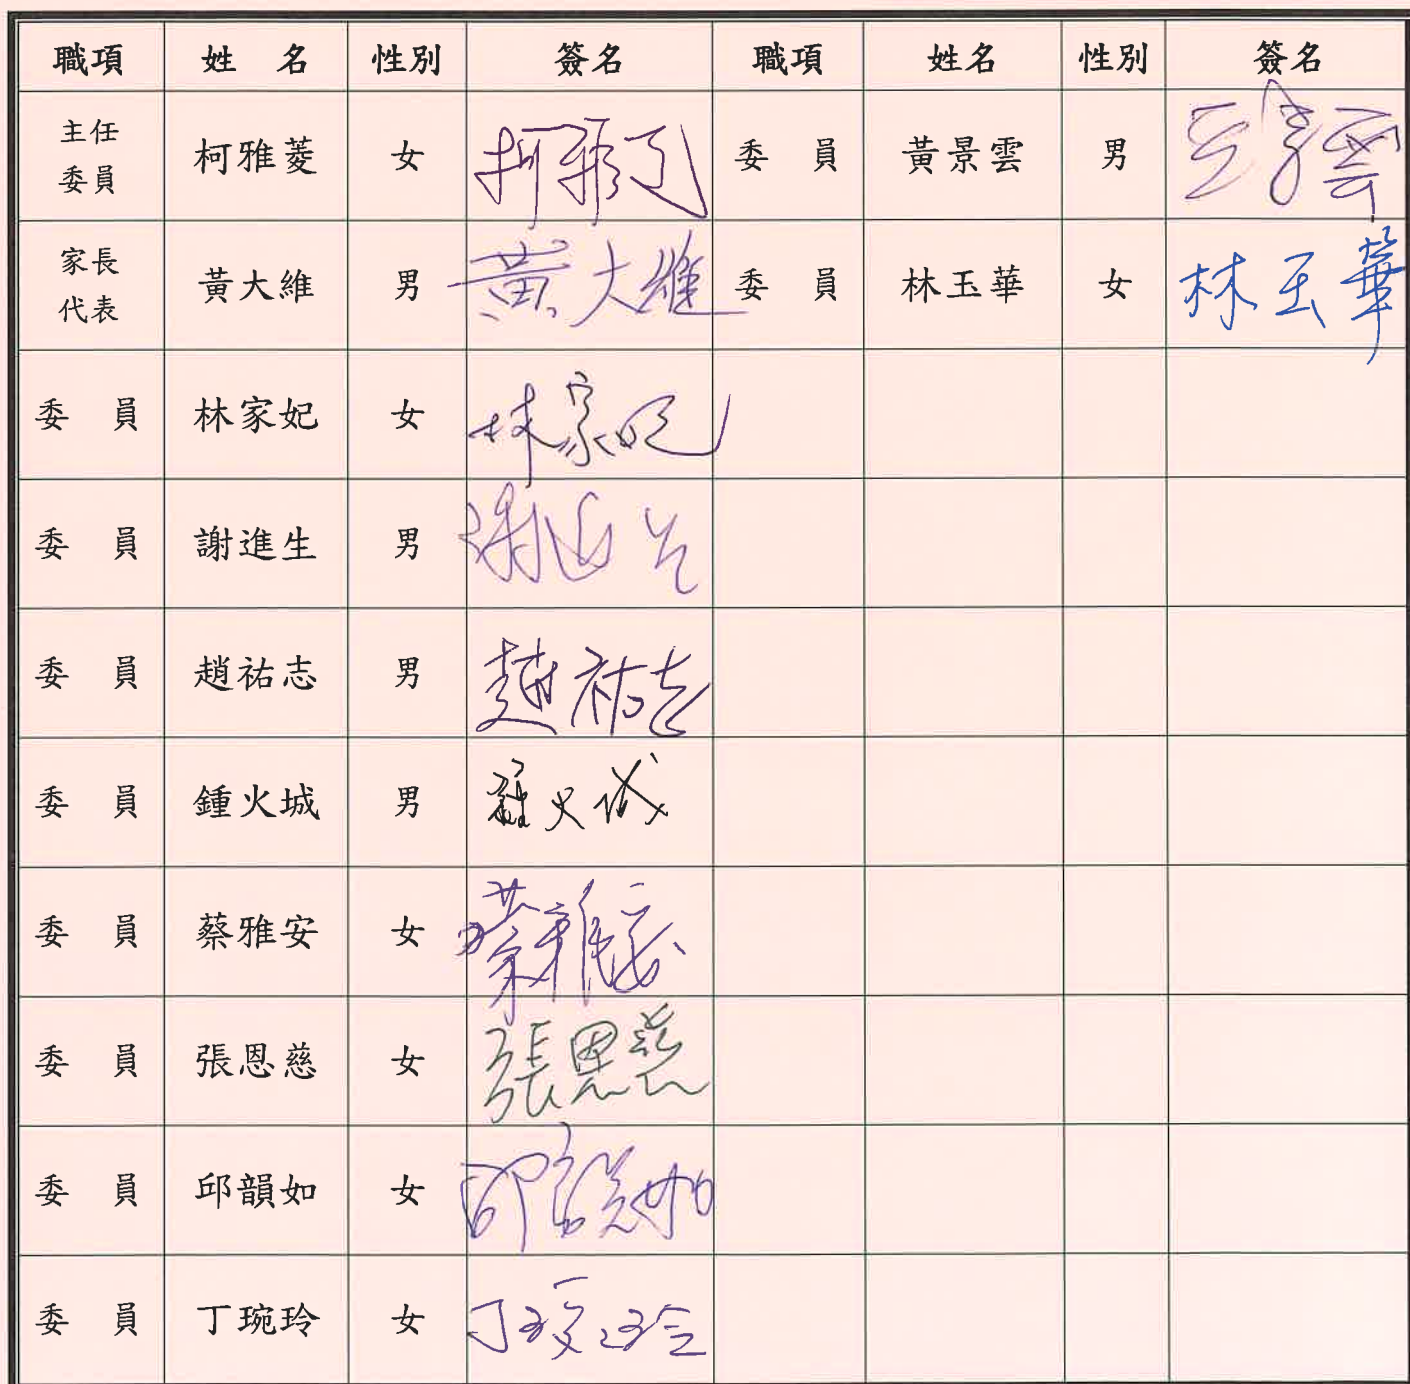 職項 姓 名 性別 簽名 職項 姓名 性別 簽名
主任
委員 柯雅菱 女 柯雅 委 員 黃景雲 男
家長
代表 黃大維 男 黃大維 委 員 林玉華 女 林玉華
委 員 林家妃 女 林家妃
委 員 謝進生 男
委 員 趙祐志 男 趙祐志
委 員 鍾火城 男 鍾火城
委 員 蔡雅安 女 蔡雅安
委 員 張恩慈 女 張恩慈
委 員 邱韻如 女 邱韻如
委 員 丁琬玲 女 丁琬玲